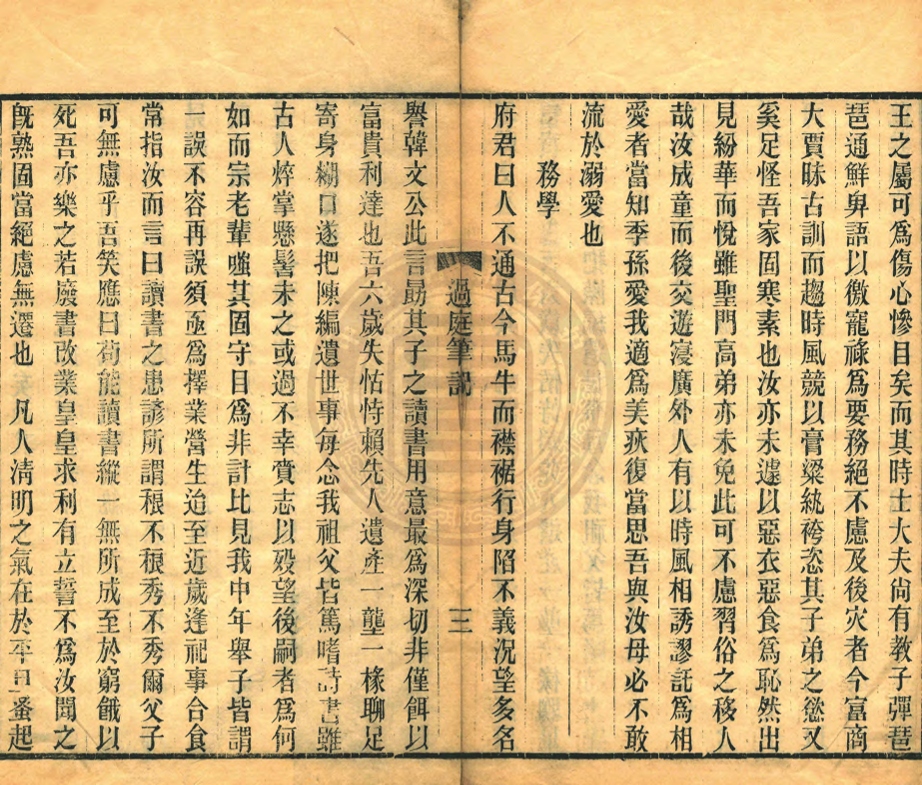 王之屬可爲傷心慘目矣而其時士大夫尚有教子彈琵
琶通鮮卑語以徼寵祿爲要務絕不慮及後灾者今富商
大賈昧古訓而趨時風競以膏粱紈袴恣其子弟之慾又
奚足怪吾家固寒素也汝亦未遽以惡衣惡食爲恥然出
見紛華而悅雖聖門高弟亦未免此可不慮習俗之移人
哉汝成童而後交遊寖廣外人有以時風相誘謬託爲相
愛者當知季孫愛我適爲美疢復當思吾與汝母必不敢
流於溺愛也
務學
府君曰人不通古今馬牛而襟裾行身陷不義況望多名
過庭筆記
三
譽韓文公此言勗其子之讀書用意最爲深切非僅餌以
富貴利達也吾六歲失怙恃賴先人遺產一壟一椽聊足
寄身糊口遂把陳編遺世事每念我祖父皆篤嗜詩書雖
古人焠掌懸髻未之或過不幸賫志以殁望後嗣者爲何
如而宗老輩嗤其固守目爲非計比見我中年舉子皆謂
一誤不容再誤須亟爲擇業營生迨至近歲逢祀事合食
常指汝而言曰讀書之患諺所謂稂不稂秀不秀爾父子
可無慮乎吾笑應曰苟能讀書縱一無所成至於窮餓以
死吾亦樂之若廢書改業皇皇求利有立誓不爲汝聞之
旣熟固當絕慮無遷也 凡人淸明之氣在於平旦蚤起